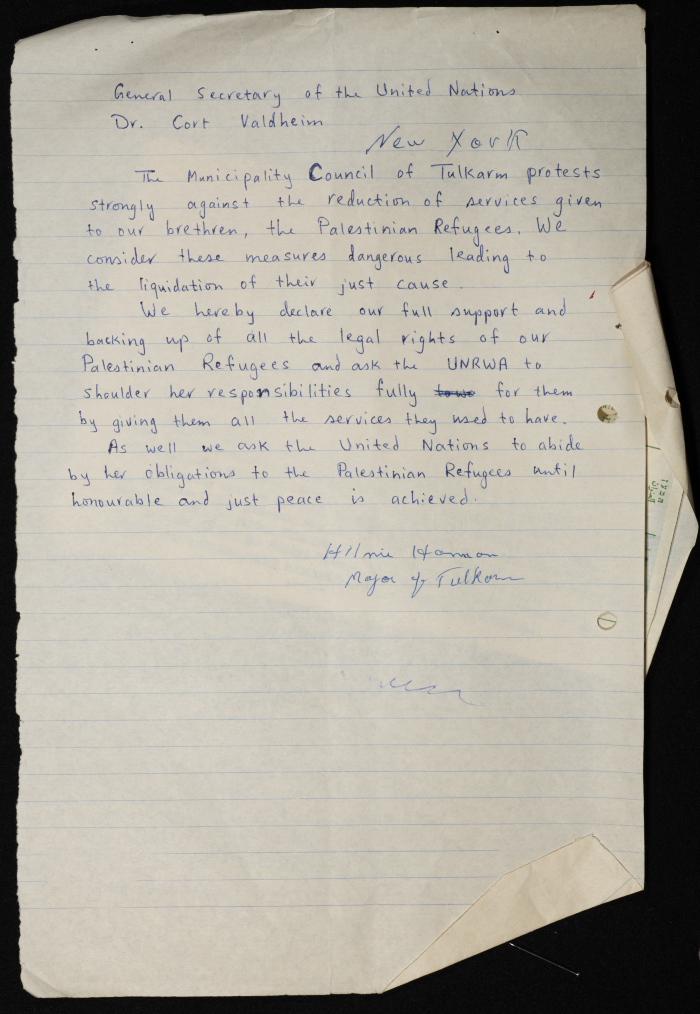 General Secretary of the United Nations
Dr. Cort Valdheim
New York
The Municipality Council of Tulkarm protests
strongly against the reduction of services given
to our brethren, the Palestinian Refugees. We
consider these measures dangerous leading to
the liquidation of their just cause.
We hereby declare our full support and
backing up of all the legal rights of our
Palestinian Refugees and ask the UNRWA to
shoulder her responsibilities fully for them
by giving them all the services they used to have.
As well we ask the United Nations to abide
by her obligations to the Palestinian Refugees until
honourable and just peace is achieved.
Hilmie Hannon
Mayor of Tulkarm